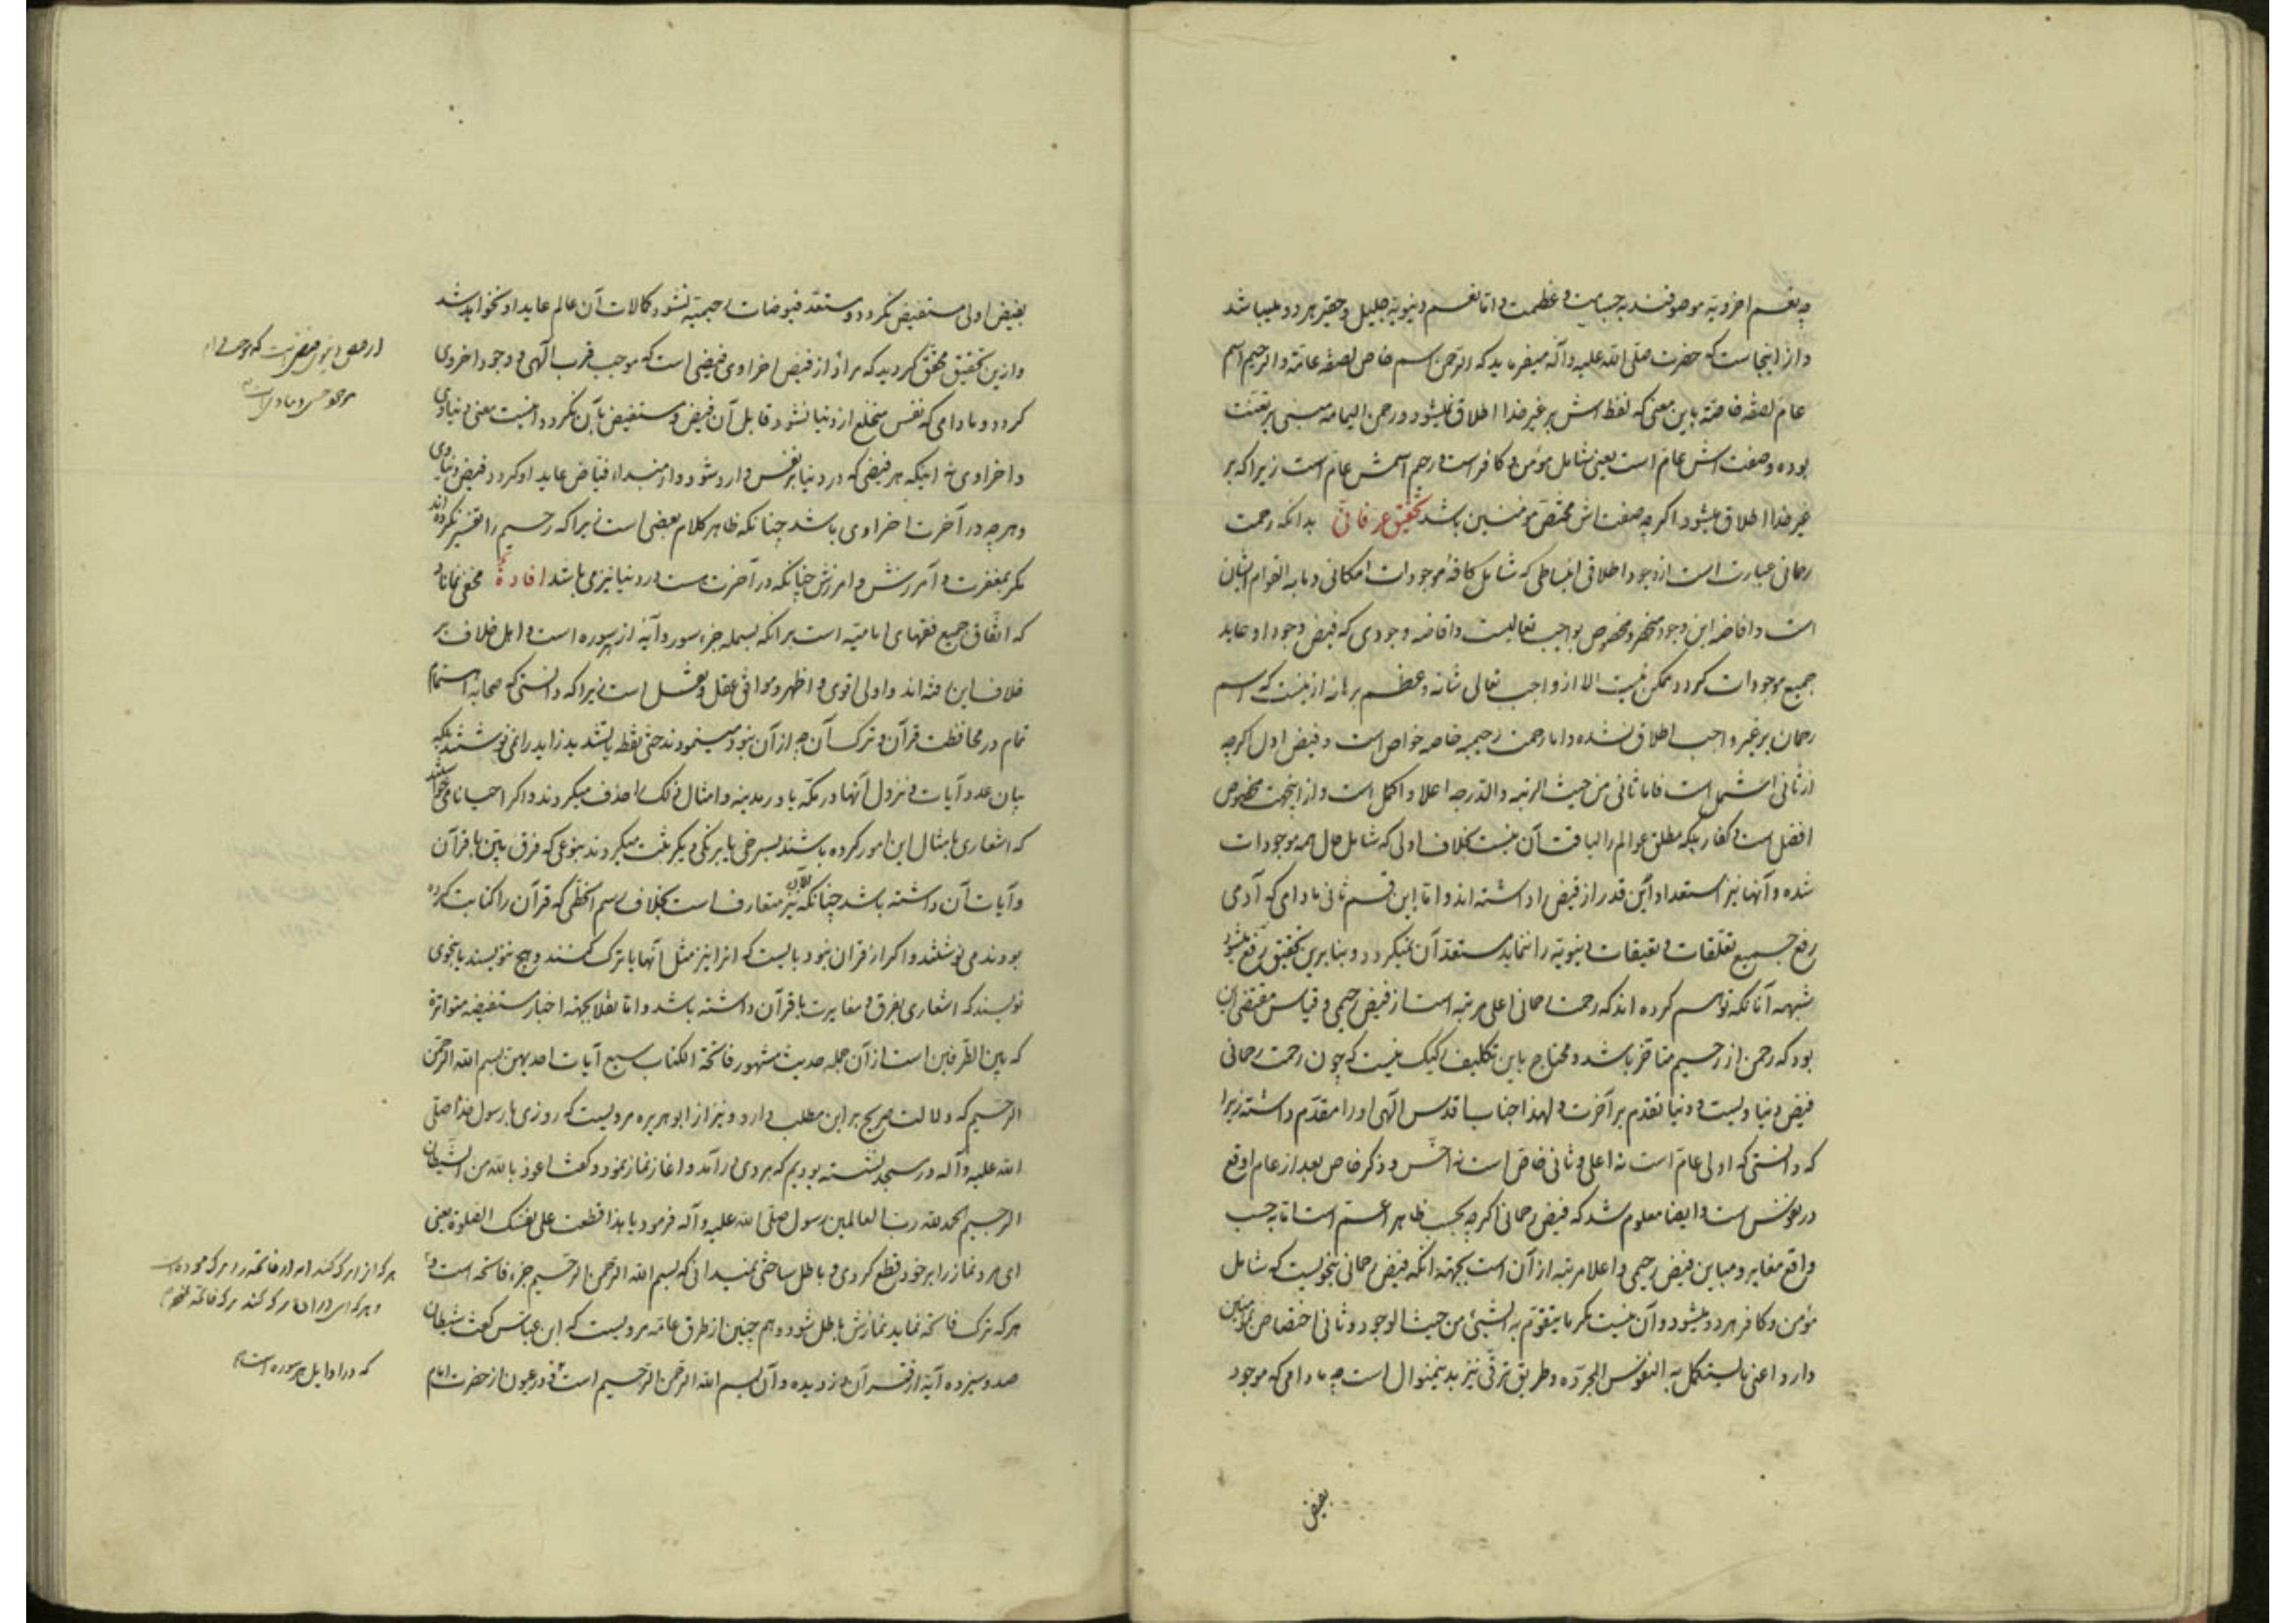 چه نعم اخرویّه موصوفند به جسامت و عظمت و اما نعم دنیویّه جلیل و حقیر هر دو میباشد
و از اینجاست که حضرت صلّی اللّه علیه و آله میفرماید که الرّحمن اسم خاص لصفة عامّة و الرحیم اسم
عام لصفة خاصّة باین معنی که لفظ اش بر غیر خدا اطلاق نمیشود و رحمن الیمامه مبنی بر تعنّت
بوده و صفت اش عام است یعنی شامل مؤمن و کافر است و رحیم اسمش عام است زیرا که بر
غیر خدا اطلاق میشود اگر چه صفت اش مختصّ مؤمنین باشد تحقیق عرفانی بدانکه رحمت
رحمانی عبارت است از وجود اطلاقی انبساطی که شامل کافهٔ موجودات امکانی و ما به القوام ایشان
است و افاضه این وجود منحصر و مخصوص بواجب تعالیست و افاضه وجودی که فیض وجود او عاید
جمیع موجودات گردد ممکن نیست الا از واجب تعالی شانه و عظم برهانه ازینست که اسم
رحمان بر غیر واجب اطلاق نشده و اما رحمت رحیمیه خاصه خواص است و فیض اول اگر چه
از ثانی اشمل است فاما ثانی من حیث الرتبه و الدّرجه اعلا و اکمل است و از اینجهت مخصوص
افضل است و کفار بلکه مطلق عوالم را لیاقت آن نیست بخلاف اولی که شامل حال همه موجودات
شده و آنها نیز استعداد این قدر از فیض را داشته اند و اما این قسم ثانی مادامی که آدمی
رفع جمیع تعلّقات و تعیقات دنیویّه را ننماید مستعد آن نمیگردد و بنابرین تحقیق رفع میشود
شبهه آنانکه توهم کرده اند که رحمت رحمانی اعلی مرتبه است از فیض رحیمی و قیاس مقتضی این
بود که رحمن از رحیم متاخر باشد و محتاج باین تکلیف رکیک نیست که چون رحمت رحمانی
فیض دنیاویست و دنیا تقدم بر آخرت و لهذا جناب اقدس الهی او را مقدّم داشته زیرا
که دانستی که اولی عام است نه اعلی و ثانی خاصّ است نه اخسّ و ذکر خاص بعد از عام اوقع
در نفوس است و ایضا معلوم شد که فیض رحمانی اگر چه بحسب ظاهر اعم است اما به حسب
واقع مغایر و مباین فیض رحیمی و اعلا مرتبه از آن است بجهة انکه فیض رحمانی بنحویست که شامل
مؤمن و کافر هر دو میشود و آن نیست مگر ما یتقوّم به الشیئ من حیث الوجود و ثانی اختصاص بمؤمنین
دارد اعنی ما یستکمل به النفوس المجرّده و طریق ترقّی نیز بدینمنوال است چه مادامی که موجود
بفیض
بفیض اولی مستفیض نگردد و مستعدّ فیوضات رحیمیّه نشود کمالات آن عالم عاید او نخواهد شد
و ازین تحقیق محقّق گردید که مراد از فیض اخراوی فیضی است که موجب قرب الهی و وجود اخروی
گردد و مادامی که نفس منخلع از دنیا نشود قابل آن فیض و مستفیض بآن نگردد اینست معنی دنیاوی
و اخراوی نه اینکه هر فیضی که در دنیا بر نفس وارد شود و از مبداء فیّاض عاید او گردد فیض دنیاوی
و هر چه در آخرت اخراوی باشد چنانکه ظاهر کلام بعضی است زیرا که رحیم را تفسیر نکرده اند
مگر بمغفرت و آمرزش و امرزش چنانکه در آخرت هست در دنیا نیز می باشد افادةٌ مخفی نماناد
که اتّفاق جمیع فقهای امامیّه است بر انکه بسمله جزء سور و آیهٔ از سوره است و اهل خلاف بر
خلاف این رفته اند و اولی اقوی و اظهر و موافق عقل و نقل است زیرا که دانستی که صحابه اهتمام
تمام در محافظت قرآن و ترک آن چه از آن نبود مینمودند حتی نقطه یا تشدید زاید را نمی نوشتند بلکه
بیان عدد آیات و نزول آنها در مکّه یا در مدینه و امثال ذلک را حذف میکردند و اگر احیانا می خواستند
که اشعاری بامثال این امور کرده باشند بسرخی یا برنگی دیگر ثبت میکردند بنوعی که فرق بیّن با قرآن
و آیات آن داشته باشد چنانکه الآن نیز متعارف است بخلاف رسم الخطّی که قرآن را کتابت کرده
بودند می نوشتند و اگر از قران نبود بایست که انرا نیز مثل آنها یا ترک کنند و هیچ ننویسند یا بنحوی
نویسند که اشعاری بفرق و مغایرت با قرآن داشته باشد و اما نقلا بجهة اخبار مستفیضه متواترة
که بین الطّرفین است از آن جمله حدیث مشهور فاتحة الکتاب سبع آیات احدیهنّ بسم اللّه الرّحمن
الرّحیم که دلالت صریح بر این مطلب دارد و نیز از ابو هریره مرویست که روزی با رسول خدا صلّی
اللّه علیه و آله در مسجد نشسته بودیم که مردی در آمد و اغاز نماز نمود و گفت اعوذ باللّه من الشیطان
الرجیم الحمد للّه ربّ العالمین رسول صلّی اللّه علیه و آله فرمود یا هذا قطعت علی نفسک الصلوة یعنی
ای مرد نماز را بر خود قطع کردی و باطل ساختی نمیدانی که بسم اللّه الرّحمن الرّحیم جزء فاتحه است و
هر که ترک فاتحه نماید نمازش باطل شود و هم چنین از طرق عامّه مرویست که ابن عباس گفت شیطان
صد و سیزده آیه از قرآن دزدیده و آن بسم اللّه الرّحمن الرّحیم است و در عیون از حضرت امام
که در اوایل هر سوره است